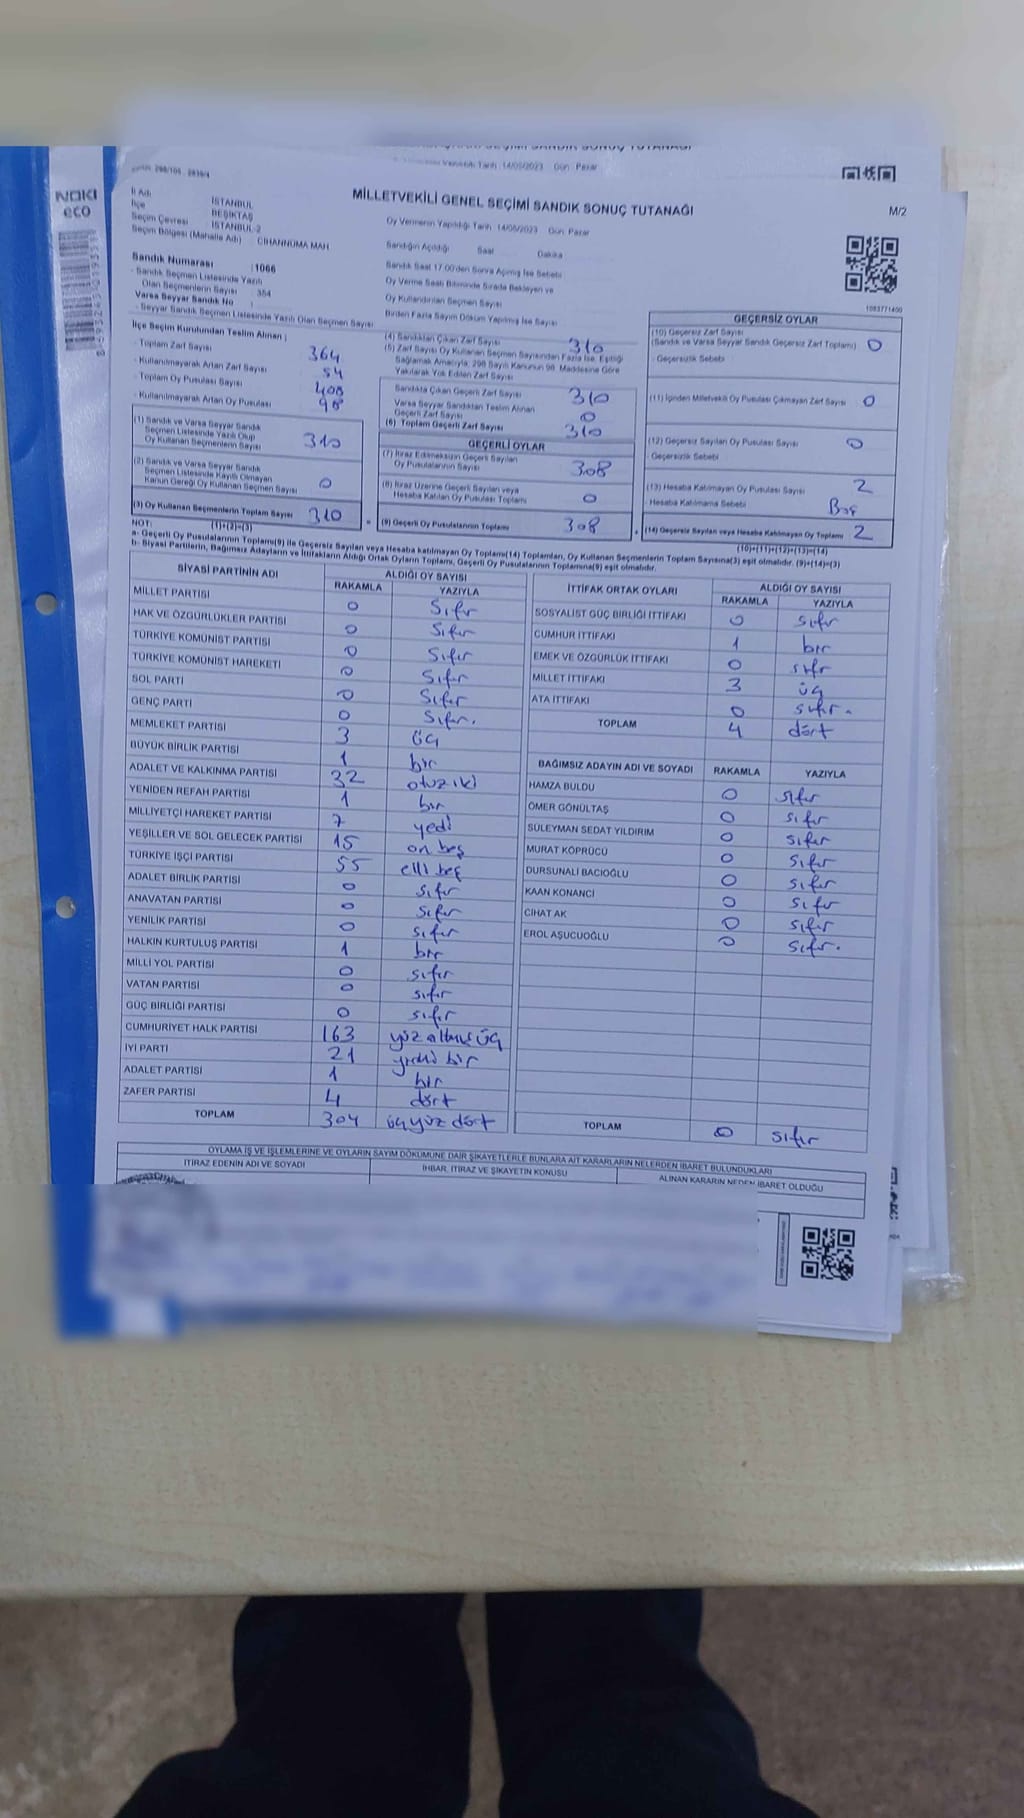 Oy Vermenin Yapıldığı Tarih 14/05/2023 Gün: Pazar
NOKI
eco
MİLLETVEKİLİ GENEL SEÇİMİ SANDIK SONUÇ TUTANAĞI
M/2
İl Adı İSTANBUL
İlçe BEŞİKTAŞ
Seçim Çevresi İSTANBUL-2
Seçim Bölgesi (Mahalle Adı) CİHANNÜMA MAH.
Oy Vermenin Yapıldığı Tarih 14/05/2023 Gün: Pazar
Sandığın Açıldığı Saat Dakika
Sandık Saat 17:00'den Sonra Açılmış İse Sebebi
Oy Verme Saati Bitiminde Sırada Bekleyen ve
Oy Kullandırılan Seçmen Sayısı
Birden Fazla Sayım Döküm Yapılmış İse Sayısı
Sandık Numarası :1066
- Sandık Seçmen Listesinde Yazılı
Olan Seçmenlerin Sayısı : 354
Varsa Seyyar Sandık No :
- Seyyar Sandık Seçmen Listesinde Yazılı Olan Seçmen Sayısı
1083771400
İlçe Seçim Kurulundan Teslim Alınan ;
- Toplam Zarf Sayısı 364
- Kullanılmayarak Artan Zarf Sayısı 54
- Toplam Oy Pusulası Sayısı 408
- Kullanılmayarak Artan Oy Pusulası 98
(1) Sandık ve Varsa Seyyar Sandık
Seçmen Listesinde Yazılı Olup
Oy Kullanan Seçmenlerin Sayısı 310
(2) Sandık ve Varsa Seyyar Sandık
Seçmen Listesinde Kayıtlı Olmayan
Kanun Gereği Oy Kullanan Seçmen Sayısı 0
(3) Oy Kullanan Seçmenlerin Toplam Sayısı 310
(1)+(2)=(3)
(4) Sandıktan Çıkan Zarf Sayısı 310
(5) Zarf Sayısı Oy Kullanan Seçmen Sayısından Fazla İse, Eşitliği
Sağlamak Amacıyla, 298 Sayılı Kanunun 98. Maddesine Göre
Yakılarak Yok Edilen Zarf Sayısı
Sandıkta Çıkan Geçerli Zarf Sayısı 310
Varsa Seyyar Sandıktan Teslim Alınan
Geçerli Zarf Sayısı 0
(6) Toplam Geçerli Zarf Sayısı 310
GEÇERLİ OYLAR
(7) İtiraz Edilmeksizin Geçerli Sayılan
Oy Pusulalarının Sayısı 308
(8) İtiraz Üzerine Geçerli Sayılan veya
Hesaba Katılan Oy Pusulası Toplamı 0
= (9) Geçerli Oy Pusulalarının Toplamı 308
GEÇERSİZ OYLAR
(10) Geçersiz Zarf Sayısı
(Sandık ve Varsa Seyyar Sandık Geçersiz Zarf Toplamı) 0
- Geçersizlik Sebebi
(11) İçinden Milletvekili Oy Pusulası Çıkmayan Zarf Sayısı 0
(12) Geçersiz Sayılan Oy Pusulası Sayısı 0
- Geçersizlik Sebebi
(13) Hesaba Katılmayan Oy Pusulası Sayısı 2
Hesaba Katılmama Sebebi Boş
+ (14) Geçersiz Sayılan veya Hesaba Katılmayan Oy Toplamı 2
(10)+(11)+(12)+(13)=(14)
NOT:
a- Geçerli Oy Pusulalarının Toplamı(9) ile Geçersiz Sayılan veya Hesaba katılmayan Oy Toplamı(14) Toplamları, Oy Kullanan Seçmenlerin Toplam Sayısına(3) eşit olmalıdır. (9)+(14)=(3)
b- Siyasi Partilerin, Bağımsız Adayların ve İttifakların Aldığı Ortak Oyların Toplamı, Geçerli Oy Pusulalarının Toplamına(9) eşit olmalıdır.
SİYASİ PARTİNİN ADI ALDIĞI OY SAYISI
RAKAMLA YAZIYLA
MİLLET PARTİSİ 0 Sıfır
HAK VE ÖZGÜRLÜKLER PARTİSİ 0 Sıfır
TÜRKİYE KOMÜNİST PARTİSİ 0 Sıfır
TÜRKİYE KOMÜNİST HAREKETİ 0 Sıfır
SOL PARTİ 0 Sıfır
GENÇ PARTİ 0 Sıfır.
MEMLEKET PARTİSİ 3 üç
BÜYÜK BİRLİK PARTİSİ 1 bir
ADALET VE KALKINMA PARTİSİ 32 otuz iki
YENİDEN REFAH PARTİSİ 1 bir
MİLLİYETÇİ HAREKET PARTİSİ 7 yedi
YEŞİLLER VE SOL GELECEK PARTİSİ 15 on beş
TÜRKİYE İŞÇİ PARTİSİ 55 elli beş
ADALET BİRLİK PARTİSİ 0 sıfır
ANAVATAN PARTİSİ 0 sıfır
YENİLİK PARTİSİ 0 sıfır
HALKIN KURTULUŞ PARTİSİ 1 bir
MİLLİ YOL PARTİSİ 0 sıfır
VATAN PARTİSİ 0 sıfır
GÜÇ BİRLİĞİ PARTİSİ 0 sıfır
CUMHURİYET HALK PARTİSİ 163 yüz altmış üç
İYİ PARTİ 21 yirmi bir
ADALET PARTİSİ 1 bir
ZAFER PARTİSİ 4 dört
TOPLAM 304 üçyüz dört
İTTİFAK ORTAK OYLARI ALDIĞI OY SAYISI
RAKAMLA YAZIYLA
SOSYALİST GÜÇ BİRLİĞİ İTTİFAKI 0 sıfır
CUMHUR İTTİFAKI 1 bir
EMEK VE ÖZGÜRLÜK İTTİFAKI 0 sıfır
MİLLET İTTİFAKI 3 üç
ATA İTTİFAKI 0 sıfır.
TOPLAM 4 dört
BAĞIMSIZ ADAYIN ADI VE SOYADI RAKAMLA YAZIYLA
HAMZA BULDU 0 sıfır
ÖMER GÖNÜLTAŞ 0 sıfır
SÜLEYMAN SEDAT YILDIRIM 0 sıfır
MURAT KÖPRÜCÜ 0 sıfır
DURSUNALİ BACIOĞLU 0 sıfır
KAAN KONANCI 0 sıfır
CİHAT AK 0 sıfır
EROL AŞUCUOĞLU 0 sıfır.
TOPLAM 0 sıfır
OYLAMA İŞ VE İŞLEMLERİNE VE OYLARIN SAYIM DÖKÜMÜNE DAİR ŞİKAYETLERLE BUNLARA AİT KARARLARIN NELERDEN İBARET BULUNDUKLARI
İTİRAZ EDENİN ADI VE SOYADI İHBAR, İTİRAZ VE ŞİKAYETİN KONUSU ALINAN KARARIN NEDEN İBARET OLDUĞU